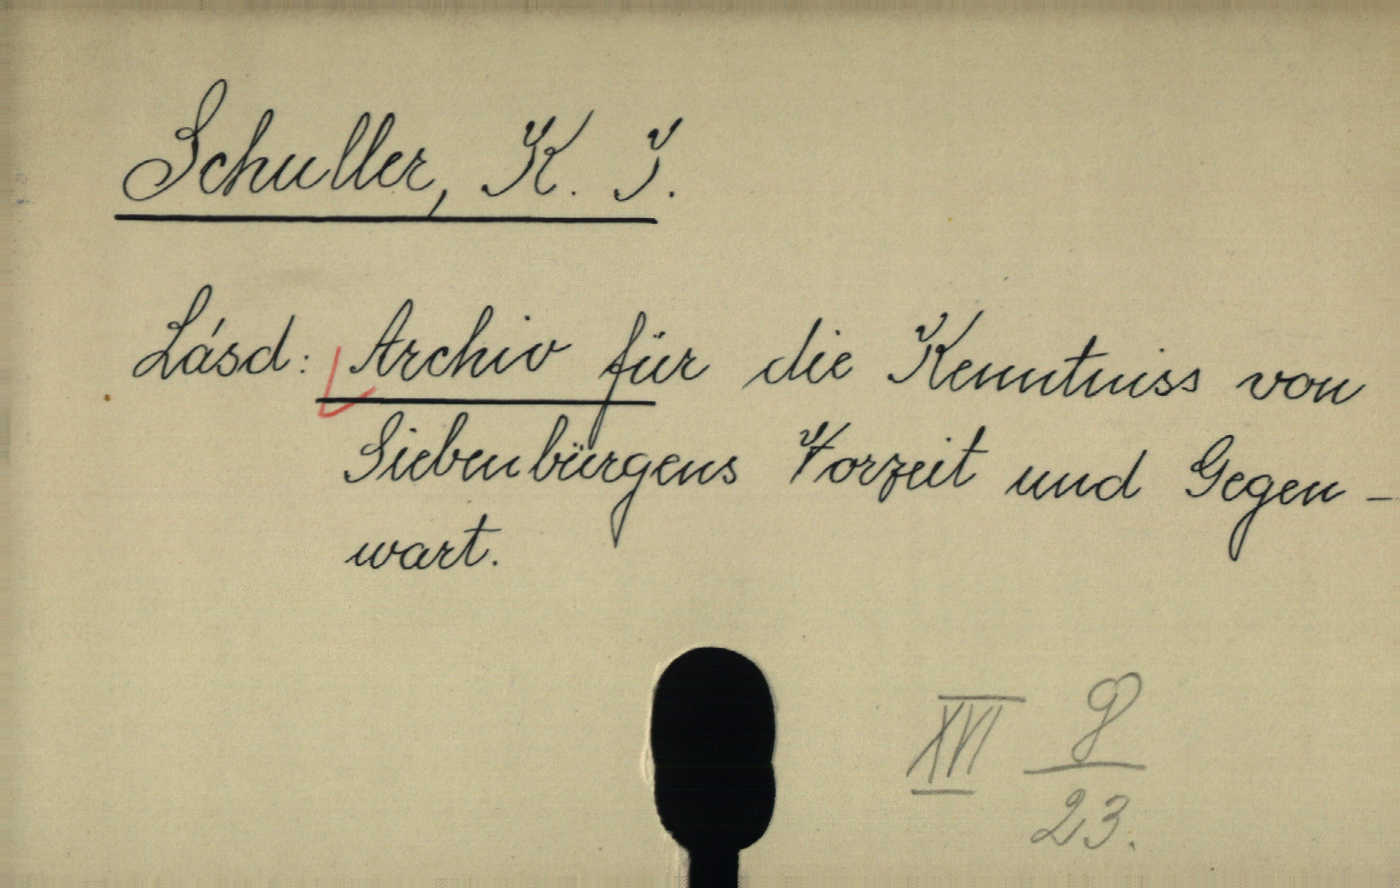 Schuller, K. J.
Lásd: Archiv für die Kenntniss von
Siebenbürgens Vorzeit und Gegen-
wart.
XVI g/23.